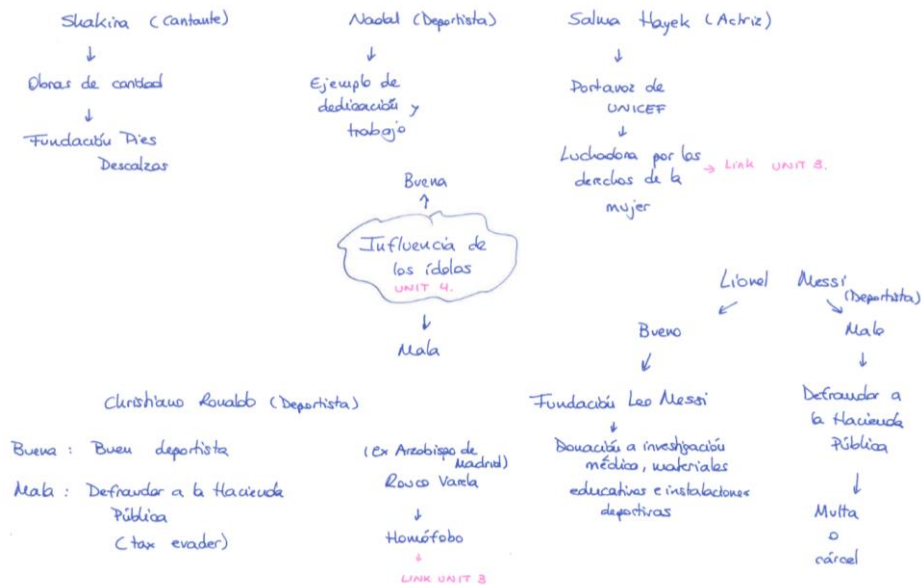 Shakira (Cantante)
↓
Obras de caridad
↓
Fundación Pies
Descalzos
Nadal (Deportista)
↓
Ejemplo de
dedicación y
trabajo
Salma Hayek (Actriz)
↓
Portavoz de
UNICEF
↓
Luchadora por los
derechos de la
mujer
→ Link UNIT 3.
Buena
↑
Influencia de
los ídolos
UNIT 4.
↓
Mala
Lionel Messi
(Deportista)
Bueno
↓
Fundación Leo Messi
↓
Donación a investigación
médica, materiales
educativos e instalaciones
deportivas
Malo
↓
Defraudar a
la Hacienda
Pública
↓
Multa
o
cárcel
Christiano Ronaldo (Deportista)
Buena : Buen deportista
Mala : Defraudar a la Hacienda
Pública
(tax evader)
(ex Arzobispo de
Madrid)
Rouco Varela
↓
Homófobo
↓
LINK UNIT 3